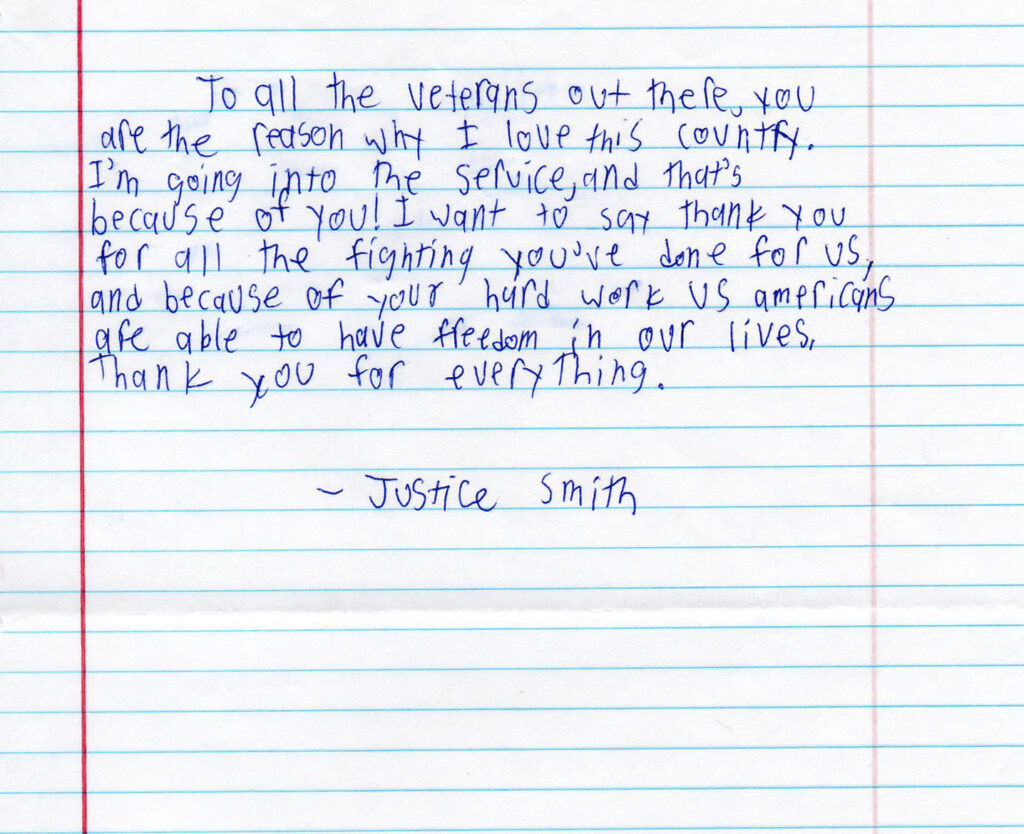 To all the veterans out there, you
are the reason why I love this country.
I'm going into the service, and that's
because of you! I want to say thank you
for all the fighting you've done for us,
and because of your hard work us americans
are able to have freedom in our lives,
Thank you for everything.
~ Justice Smith